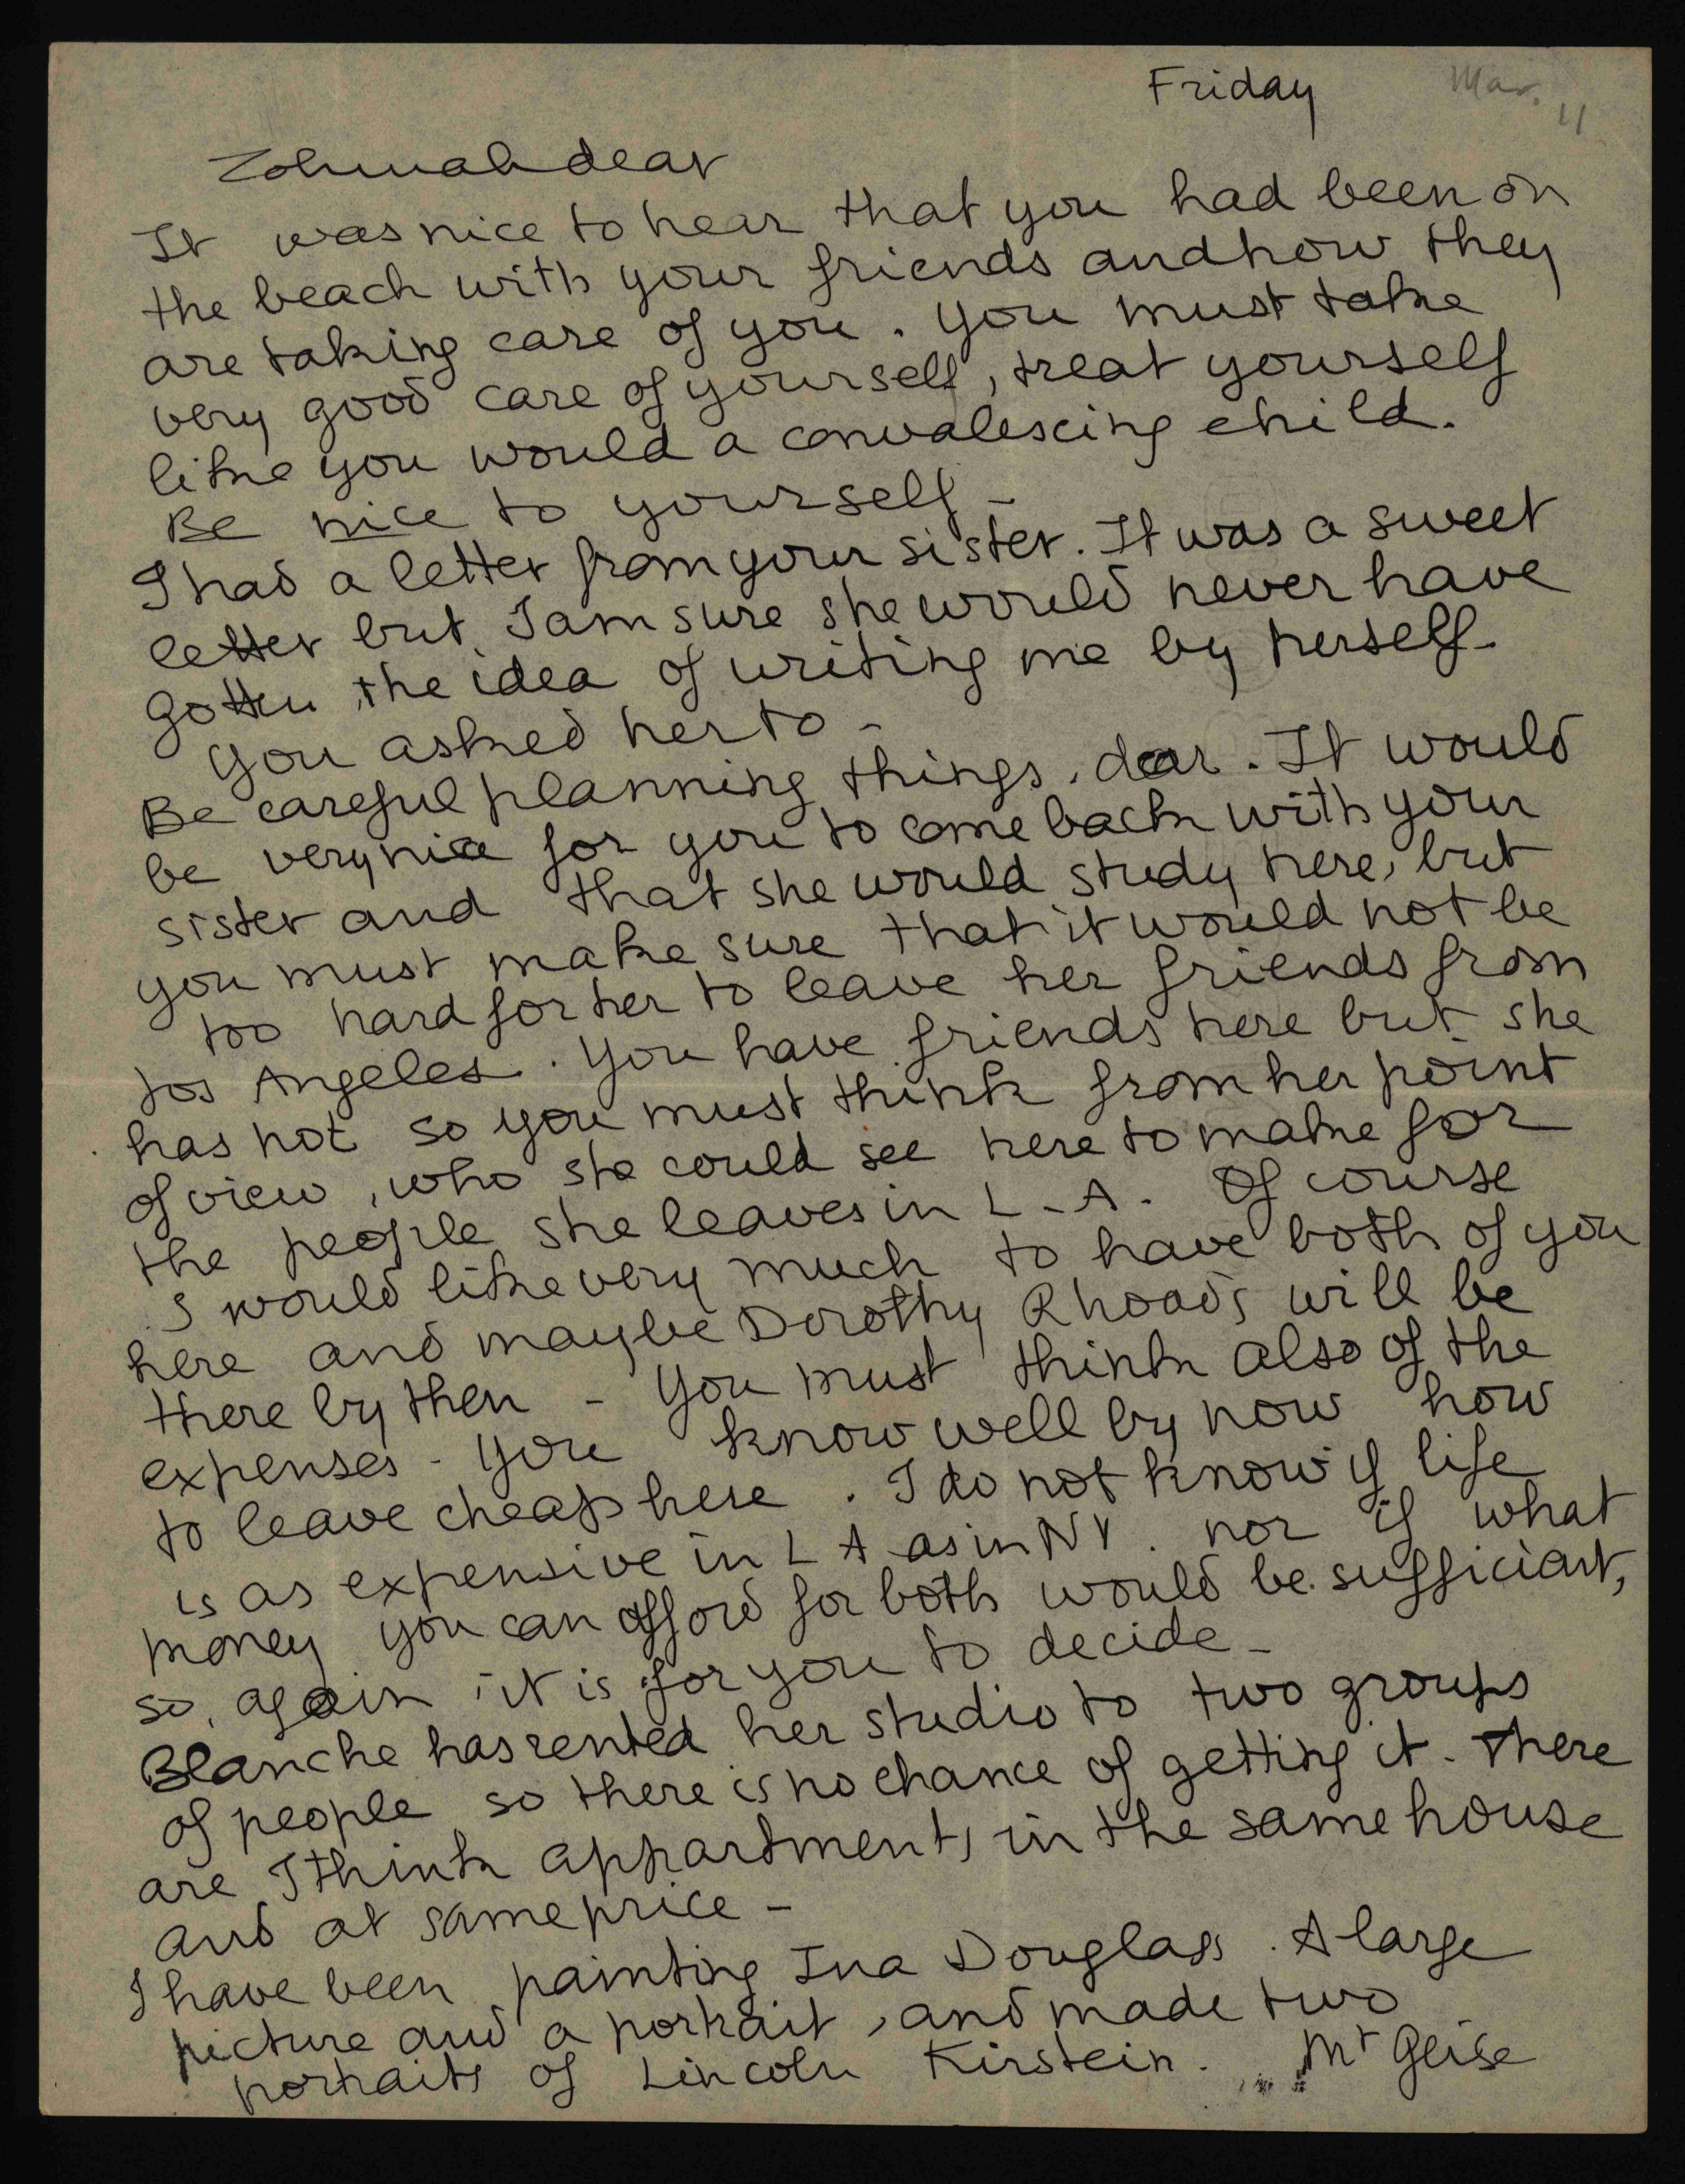 Friday Mar. 11
Zohmah dear
It was nice to hear that you had been on
the beach with your friends and how they
are taking care of you. You must take
very good care of yourself, treat yourself
like you would a convalescing child.
Be nice to yourself -
I had a letter from your sister. It was a sweet
letter but I am sure she would never have
gotten the idea of writing me by herself.
You asked her to -
Be careful planning things, dear. It would
be very nice for you to come back with your
sister and that she would study here, but
you must make sure that it would not be
too hard for her to leave her friends from
Los Angeles. You have friends here but she
has not so you must think from her point
of view, who she could see here to make for
the people she leaves in L.A. Of course
I would like very much to have both of you
here and maybe Dorothy Rhoads will be
there by then - You must think also of the
expenses - You know well by now how
to leave cheap here. I do not know if life
is as expensive in L A as in NY. nor if what
money you can afford for both would be sufficiant,
so, again, it is for you to decide -
Blanche has rented her studio to two groups
of people so there is no chance of getting it. There
are I think appartments in the same house
and at same price -
I have been painting Ina Douglass. A large
picture and a portrait, and made two
portraits of Lincoln Kirstein. Mr Geise